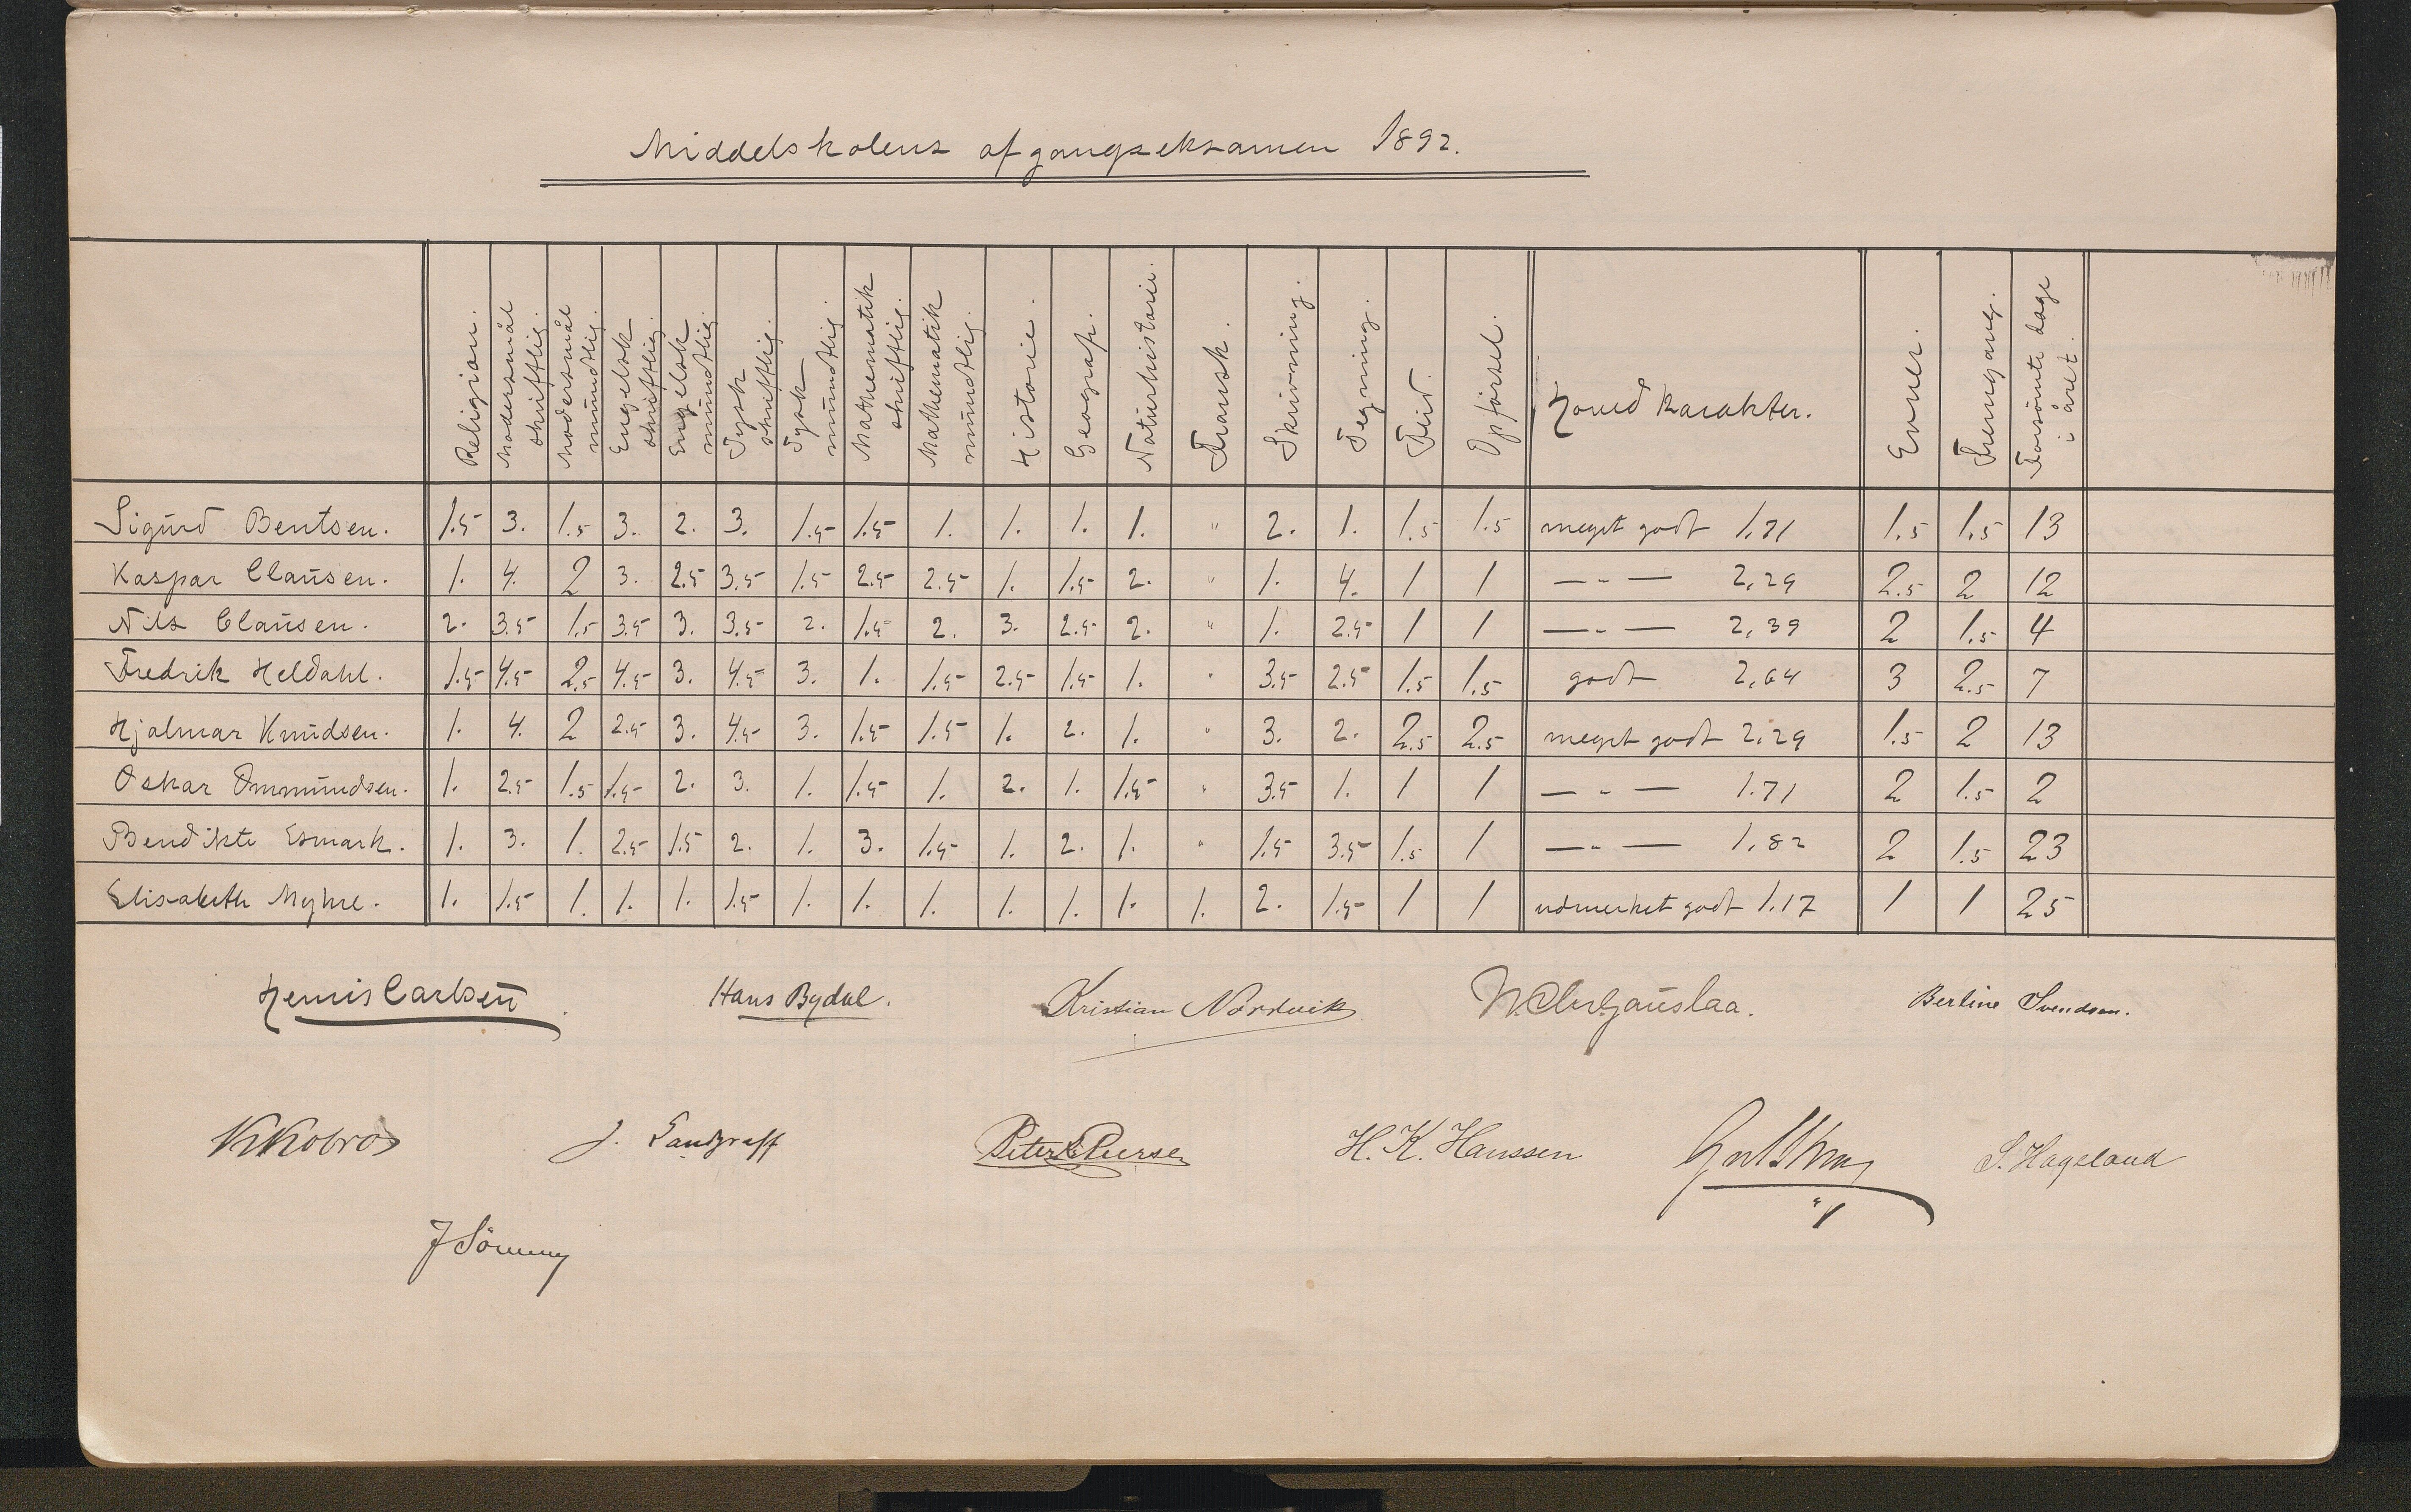 Middelskolens afgangseksamen 1892.
Religion. Modersmål skriftlig. Modersmål mundtlig. Engelsk skriftlig. Engelsk mundtlig. Tysk skriftlig. Tysk mundtlig. Mathematik skriftlig. Mathematik mundtlig. Historie. Geograf. Naturhistorie. Fransk. Skrivning. Tegning. Flid. Opførsel. Hovedkarakter. Evner. Fremgang. Forsömte dage i året.
Sigurd Bentsen. 1.5 3. 1.5 3. 2. 3. 1.5 1.5 1. 1. 1. 1. " 2. 1. 1.5 1.5 meget godt 1.71 1.5 1.5 13
Kaspar Clausen. 1. 4. 2 3. 2.5 3.5 1.5 2.5 2.5 1. 1.5 2. " 1. 4. 1 1 — " — 2,29 2.5 2 12
Nils Clausen. 2. 3.5 1.5 3.5 3. 3.5 2. 1.5 2. 3. 2.5 2. " 1. 2.5 1 1 — " — 2,39 2 1.5 4
Fredrik Heldahl. 1.5 4.5 2.5 4.5 3. 4.5 3. 1. 1.5 2.5 1.5 1. " 3.5 2.5 1.5 1.5 godt 2,64 3 2.5 7
Hjalmar Knudsen. 1. 4. 2 2.5 3. 4.5 3. 1.5 1.5 1. 2. 1. " 3. 2. 2.5 2.5 meget godt 2.29 1.5 2 13
Oskar Ommundsen. 1. 2.5 1.5 1.5 2. 3. 1. 1.5 1. 2. 1. 1.5 " 3.5 1. 1 1 — " — 1.71 2 1.5 2
Bendikte Esmark. 1. 3. 1. 2.5 1.5 2. 1. 3. 1.5 1. 2. 1. " 1.5 3.5 1.5 1 — " — 1,82 2 1.5 23
Elisabeth Myhre. 1. 1.5 1. 1. 1. 1.5 1. 1. 1. 1. 1. 1. 1. 2. 1.5 1 1 udmerket godt 1.17 1 1 25
Carlsen Hans Bydal. Kristian Nordvik Berline Svendsen.
J. Landgraff Peter H. K. Hanssen S. Hageland
J